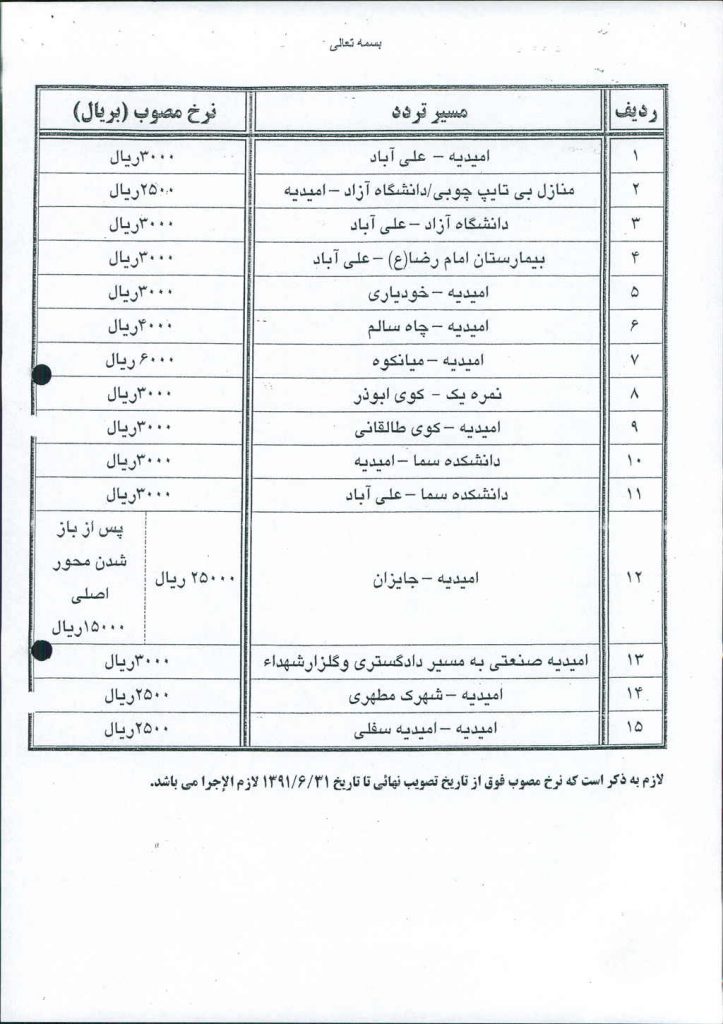 بسمه تعالی
ردیف مسیر تردد نرخ مصوب (بریال)
۱ امیدیه – علی آباد ۳۰۰۰ریال
۲ منازل بی تایپ چوبی/دانشگاه آزاد – امیدیه ۲۵۰۰ریال
۳ دانشگاه آزاد – علی آباد ۳۰۰۰ریال
۴ بیمارستان امام رضا(ع) – علی آباد ۳۰۰۰ریال
۵ امیدیه – خودیاری ۳۰۰۰ریال
۶ امیدیه – چاه سالم ۴۰۰۰ریال
۷ امیدیه – میانکوه ۶۰۰۰ ریال
۸ نمره یک - کوی ابوذر ۳۰۰۰ریال
۹ امیدیه – کوی طالقانی ۳۰۰۰ریال
۱۰ دانشکده سما – امیدیه ۳۰۰۰ریال
۱۱ دانشکده سما – علی آباد ۳۰۰۰ریال
۱۲ امیدیه – جایزان ۲۵۰۰۰ ریال
پس از باز
شدن محور
اصلی
۱۵۰۰۰ریال
۱۳ امیدیه صنعتی به مسیر دادگستری وگلزارشهداء ۳۰۰۰ریال
۱۴ امیدیه – شهرک مطهری ۲۵۰۰ریال
۱۵ امیدیه – امیدیه سفلی ۲۵۰۰ریال
لازم به ذکر است که نرخ مصوب فوق از تاریخ تصویب نهائی تا تاریخ ۱۳۹۱/۶/۳۱ لازم الإجرا می باشد.